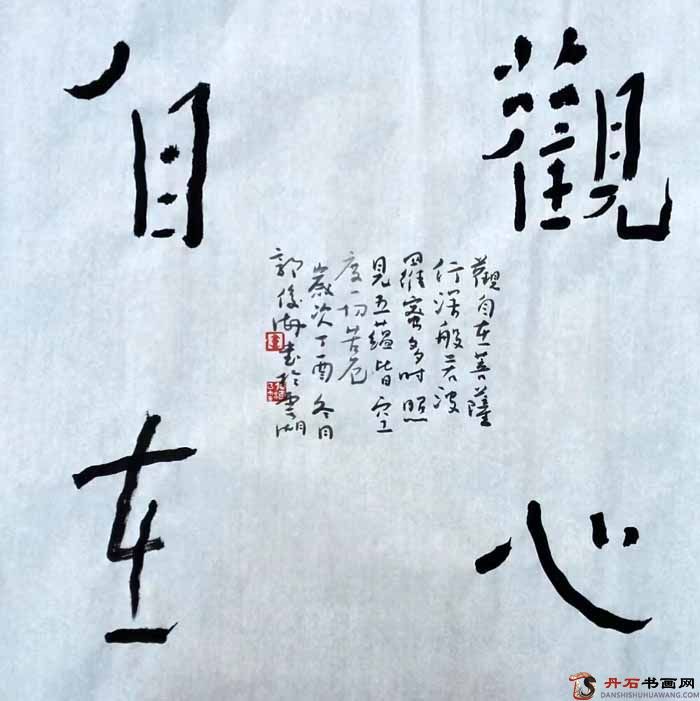 觀心
自在
觀自在菩薩
行深般若波
羅蜜多時照
見五蘊皆空
度一切苦厄
歲次丁酉冬月
郭俊海書於雲湖
丹石书画网
DANSHISHUHUAWANG.COM